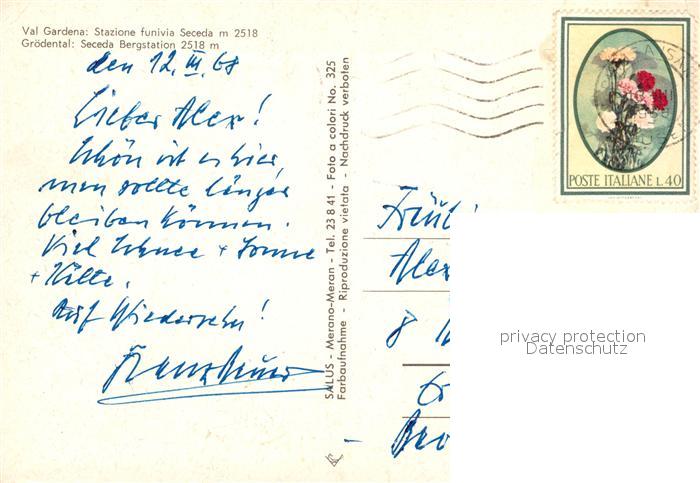 Val Gardena: Stazione funivia Seceda m 2518
Grödental: Seceda Bergstation 2518 m
den 12. III. 68
Lieber Alex!
Schön ist es hier,
man sollte länger
bleiben können.
Viel Schnee + Sonne
+ Kälte.
Auf Wiedersehn!
SALUS - Merano-Meran - Tel. 23 8 41 - Foto a colori No. 325
Farbaufnahme - Riproduzione vietata - Nachdruck verboten
POSTE ITALIANE L. 40
Alex
8
privacy protection
Datenschutz